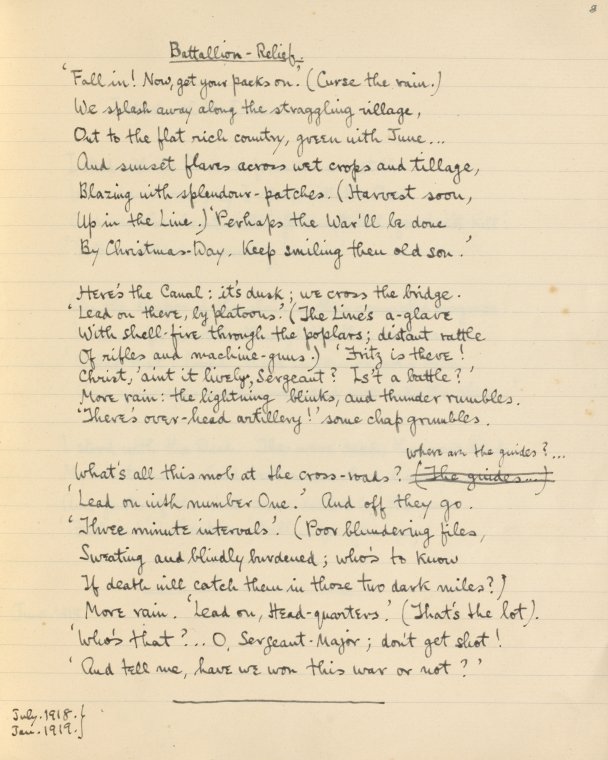 8
Battallion-Relief.
'Fall in! Now, get your packs on.' (Curse the rain.)
We splash away along the straggling village,
Out to the flat rich country, green with June...
And sunset flares across wet crops and tillage,
Blazing with splendour-patches. (Harvest soon,
Up in the Line.) 'Perhaps the War'll be done
By Christmas-Day. Keep smiling then old son.'
Here's the Canal: it's dusk; we cross the bridge.
'Lead on there, by platoons.' (The Line's a-glare
With shell-fire through the poplars; distant rattle
Of rifles and machine-guns.) 'Fritz is there!
Christ, 'aint it lively, Sergeant? Is't a battle?'
More rain: the lightning blinks, and thunder rumbles.
'There's over-head artillery!' some chap grumbles.
where are the guides?...
What's all this mob at the cross-roads? (The guides...)
'Lead on with number One.' And off they go.
'Three minute intervals'. (Poor blundering files,
Sweating and blindly burdened; who's to know
If death will catch them in those two dark miles?)
More rain. 'Lead on, Head-quarters.' (That's the lot).
'Who's that?... O, Sergeant-Major; don't get shot!
'And tell me, have we won this war or not?'
July. 1918.
Jan. 1919.